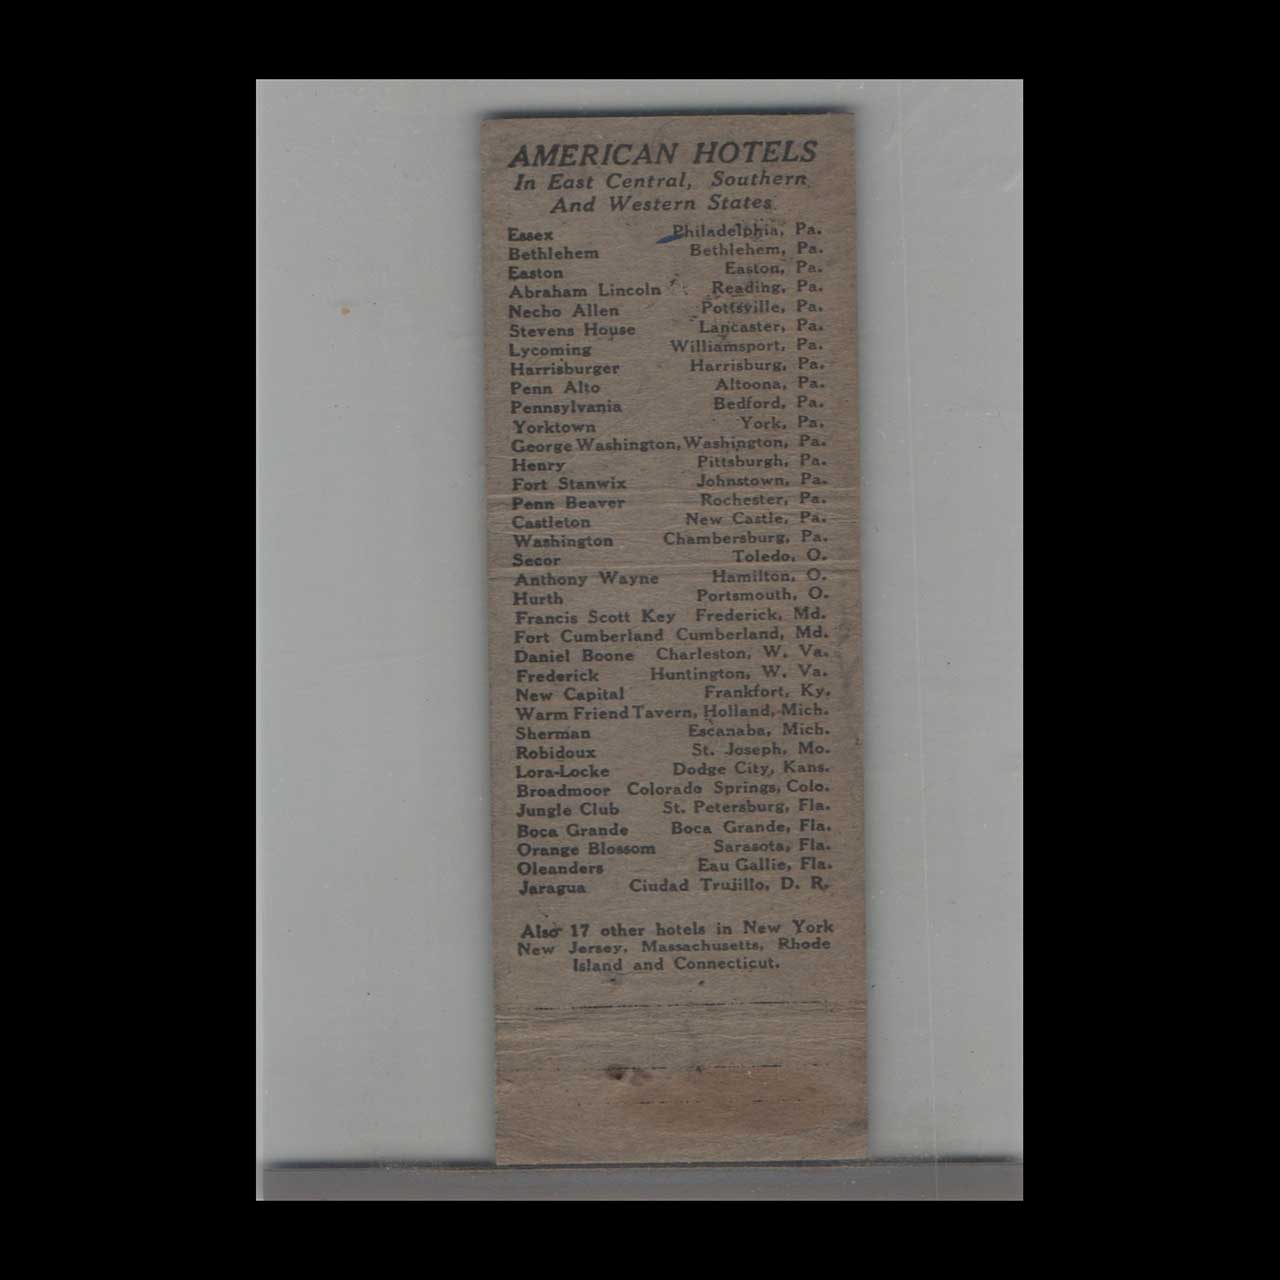 AMERICAN HOTELS
In East Central, Southern
And Western States
Essex Philadelphia, Pa.
Bethlehem Bethlehem, Pa.
Easton Easton, Pa.
Abraham Lincoln Reading, Pa.
Necho Allen Pottsville, Pa.
Stevens House Lancaster, Pa.
Lycoming Williamsport, Pa.
Harrisburger Harrisburg, Pa.
Penn Alto Altoona, Pa.
Pennsylvania Bedford, Pa.
Yorktown York, Pa.
George Washington, Washington, Pa.
Henry Pittsburgh, Pa.
Fort Stanwix Johnstown, Pa.
Penn Beaver Rochester, Pa.
Castleton New Castle, Pa.
Washington Chambersburg, Pa.
Secor Toledo, O.
Anthony Wayne Hamilton, O.
Hurth Portsmouth, O.
Francis Scott Key Frederick, Md.
Fort Cumberland Cumberland, Md.
Daniel Boone Charleston, W. Va.
Frederick Huntington, W. Va.
New Capital Frankfort, Ky.
Warm Friend Tavern, Holland, Mich.
Sherman Escanaba, Mich.
Robidoux St. Joseph, Mo.
Lora-Locke Dodge City, Kans.
Broadmoor Colorado Springs, Colo.
Jungle Club St. Petersburg, Fla.
Boca Grande Boca Grande, Fla.
Orange Blossom Sarasota, Fla.
Oleanders Eau Gallie, Fla.
Jaragua Ciudad Trujillo, D. R.
Also 17 other hotels in New York
New Jersey, Massachusetts, Rhode
Island and Connecticut.